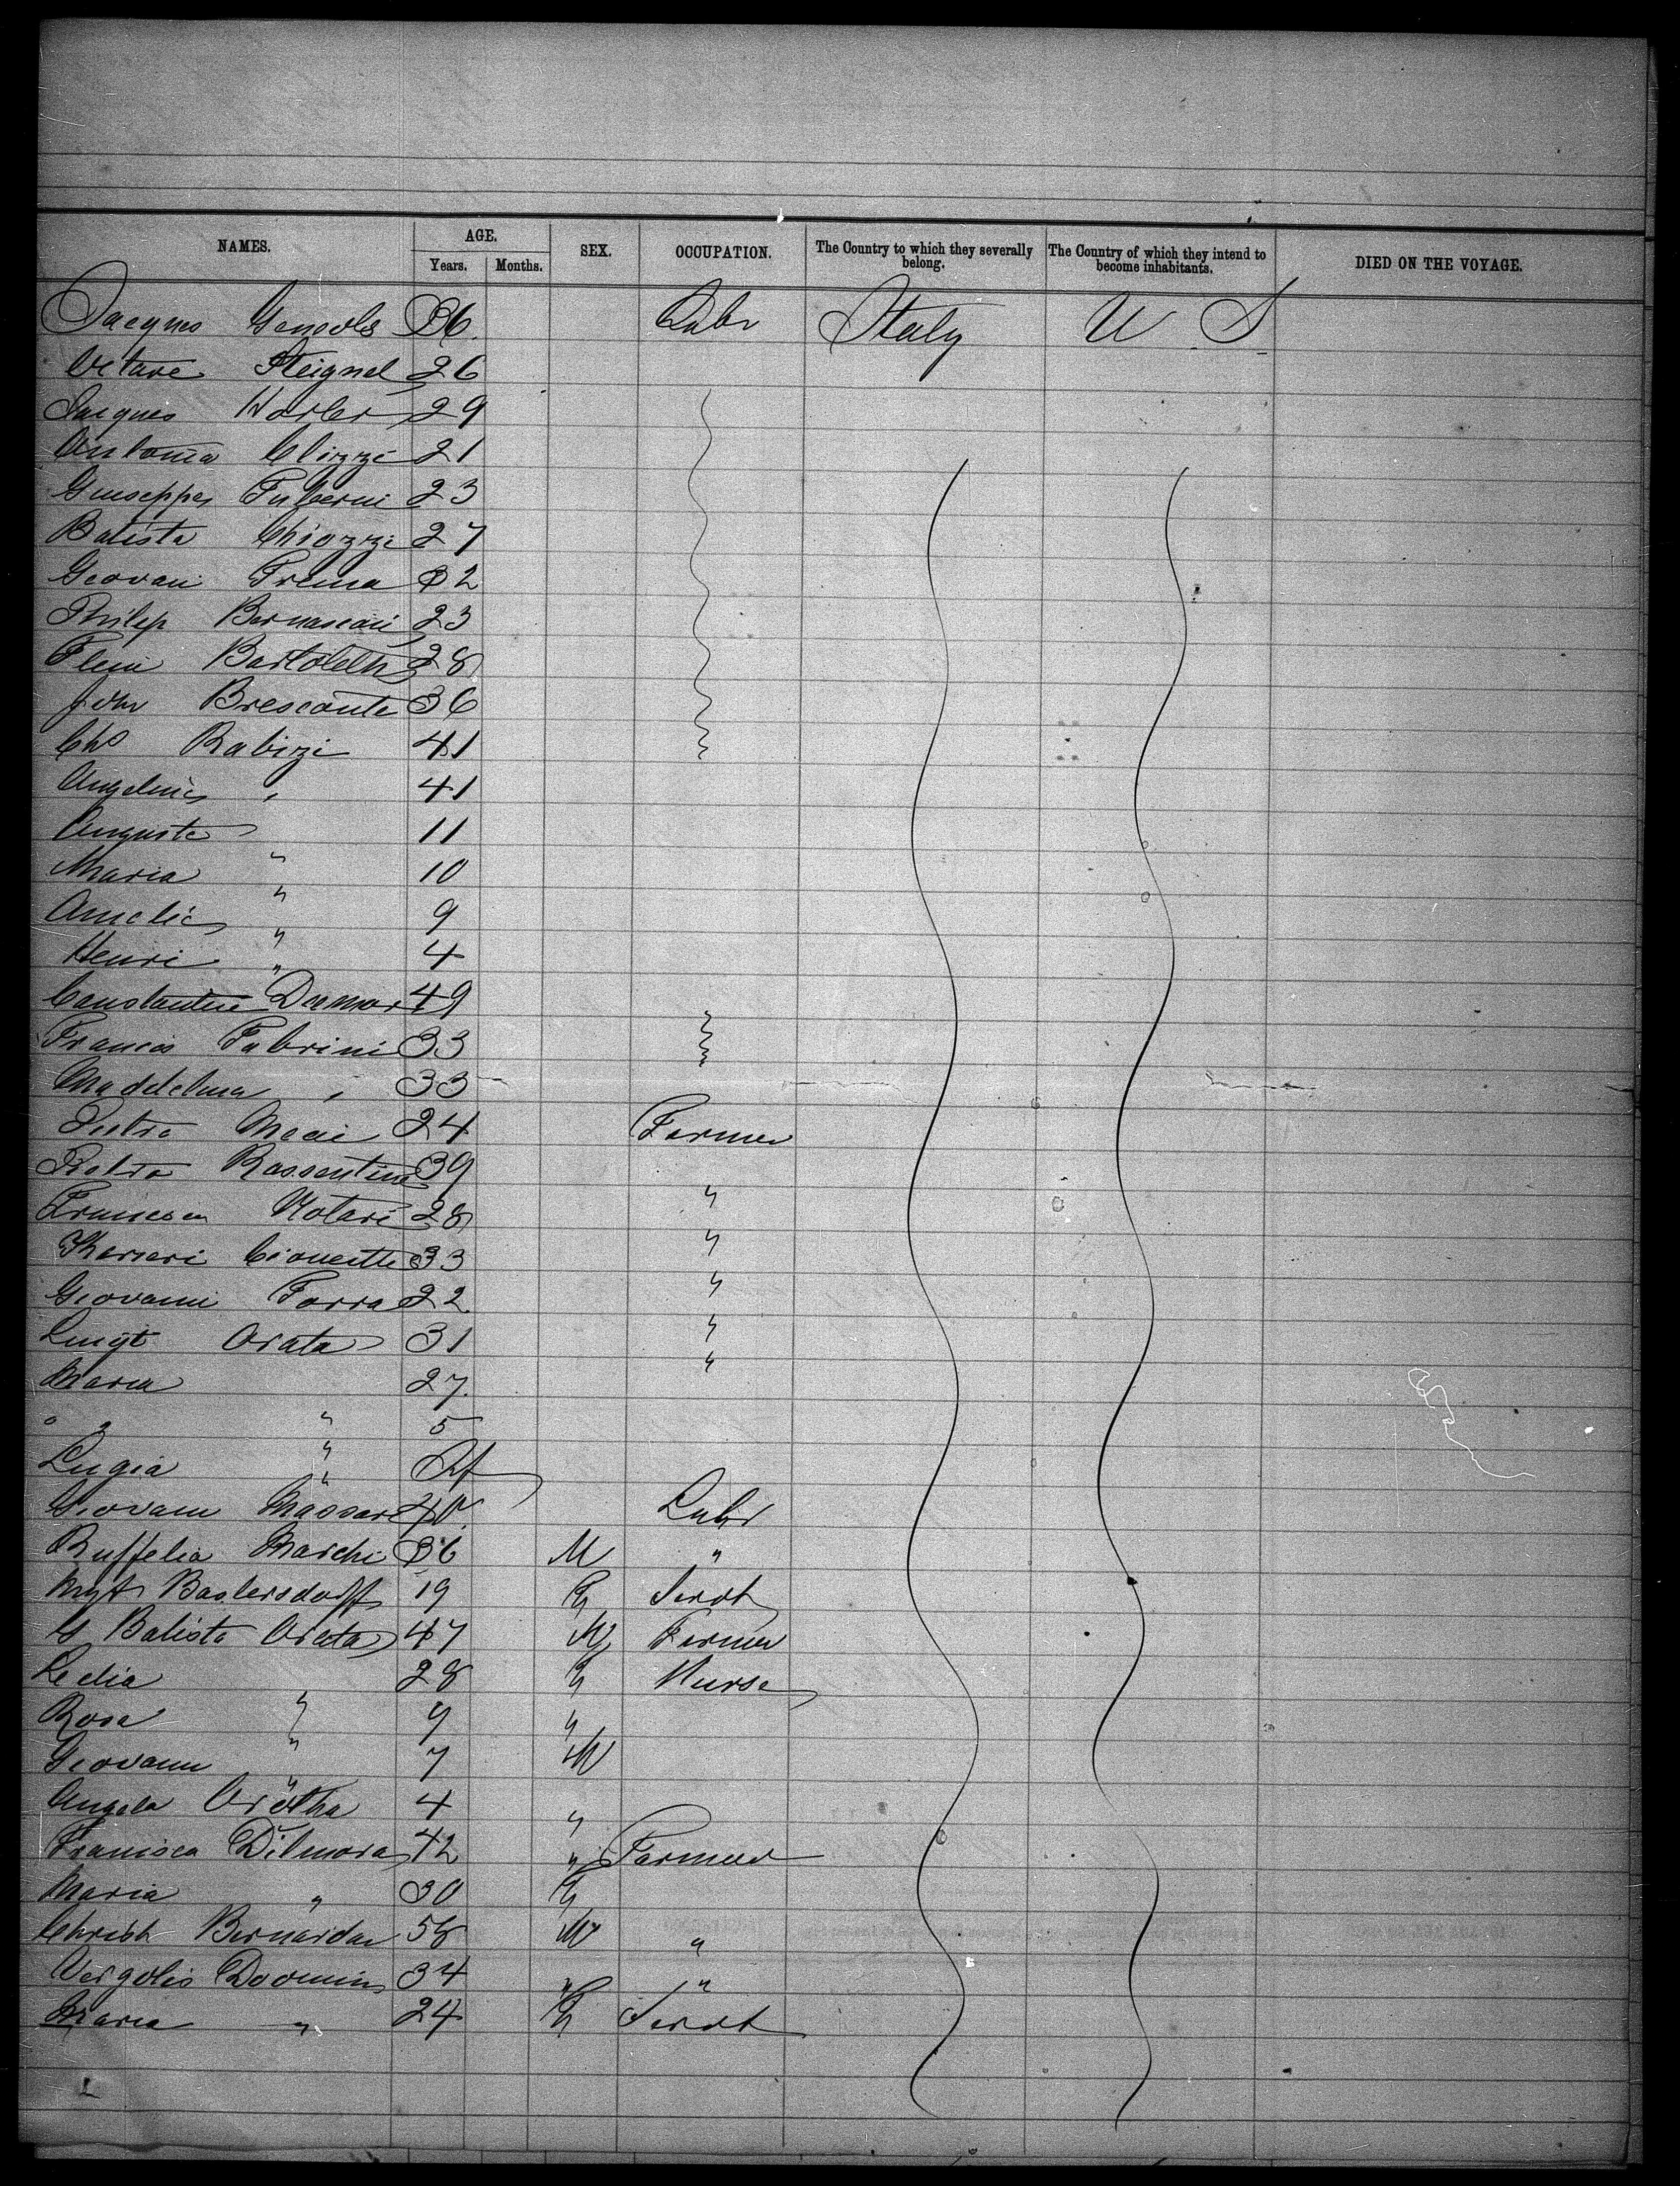 NAMES. AGE. Years. Months. SEX. OCCUPATION. The Country to which they severally belong. The Country of which they intend to become inhabitants. DIED ON THE VOYAGE.
Jacques 36 Labr Italy U S
Octave Steignel 26
Jacques 29
Antonia Clizzi 21
Guiseppe 23
Batista Chiozzi 27
Geovani Prima 32
Philip Bernasconi 23
Bartoletti 28
John Bresconte 36
Chs Rabizi 41
Angelina " 41
Auguste " 11
Maria " 10
Amelie " 9
Henri " 4
Constantine 49
Francis Fabrini 33
Madelelina " 33
Pietro Macie 24 Farmer
Pietro Rassentina 39 "
Francesca Notari 28 "
Cionette 33 "
Giovanni Forra 22 "
Luigi Orata 31 "
Maria " 27
" 5
Lugia " Inf
Giovani Massari 40 Labr
Ruffelia Marchi 36 M "
Mgt Baslersdorff 19 F Servt
G Batista Orata 47 M Farmer
Ledia " 28 F Nurse
Rosa " 9 "
Giovanni " 7 M
Angela Oratha 4 "
Francisca Dilmora 42 " Farmer
Maria " 30 F
Christ Bernardan 58 M "
Vergolis Doomin 34 " "
Maria " 24 F Servt